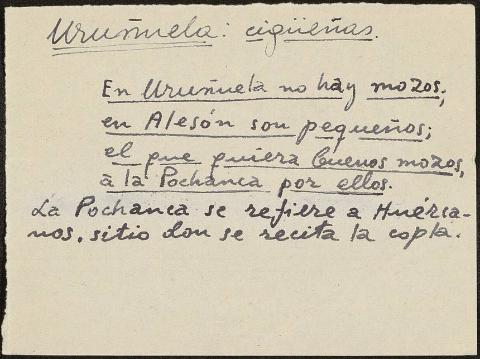 Uruñuela: cigüeñas.
En Uruñuela no hay mozos;
en Alesón son pequeños;
el que quiera buenos mozos,
á la Pochanca por ellos.
La Pochanca se refiere a Huérca-
nos, sitio don se recita la copla.